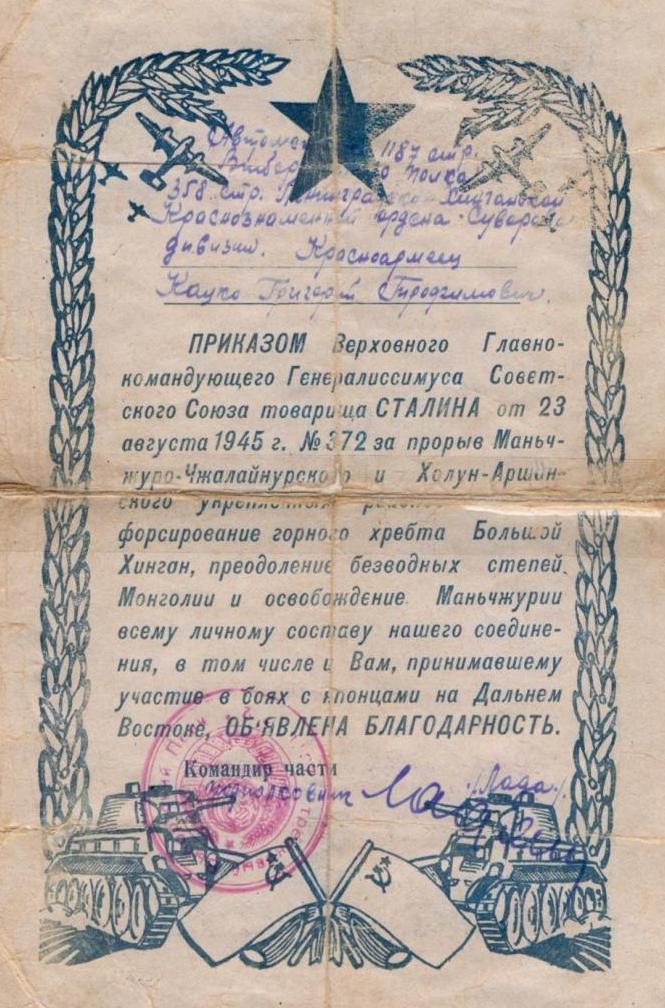 1187 стр.
полка
358 стр. Хинганской
Краснознаменной ордена Суворова
дивизии. Красноармеец
Кацко Григорий Трофимович.
ПРИКАЗОМ Верховного Главно-
командующего Генералиссимуса Совет-
ского Союза товарища СТАЛИНА от 23
августа 1945 г. № 372 за прорыв Маньч-
журо-Чжалайнурского и Холун-Аршан-
ского укрепленных
форсирование горного хребта Большой
Хинган, преодоление безводных степей
Монголии и освобождение Маньчжурии
всему личному составу нашего соедине-
ния, в том числе и Вам, принимавшему
участие в боях с японцами на Дальнем
Востоке, ОБ'ЯВЛЕНА БЛАГОДАРНОСТЬ.
Командир части
подполковник /Лада/